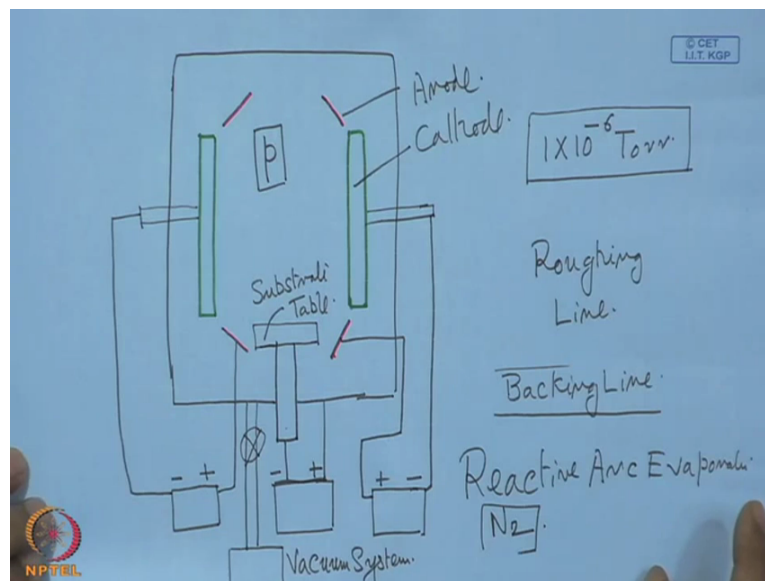 © CET
I.I.T. KGP
Anode.
Cathode.
1X10⁻⁶ Torr.
P
Substrali
Table.
Roughing
Line.
Backing Line.
Reactive Arc Evaporati
N2
- +
- +
+ -
Vacuum System.
NPTEL